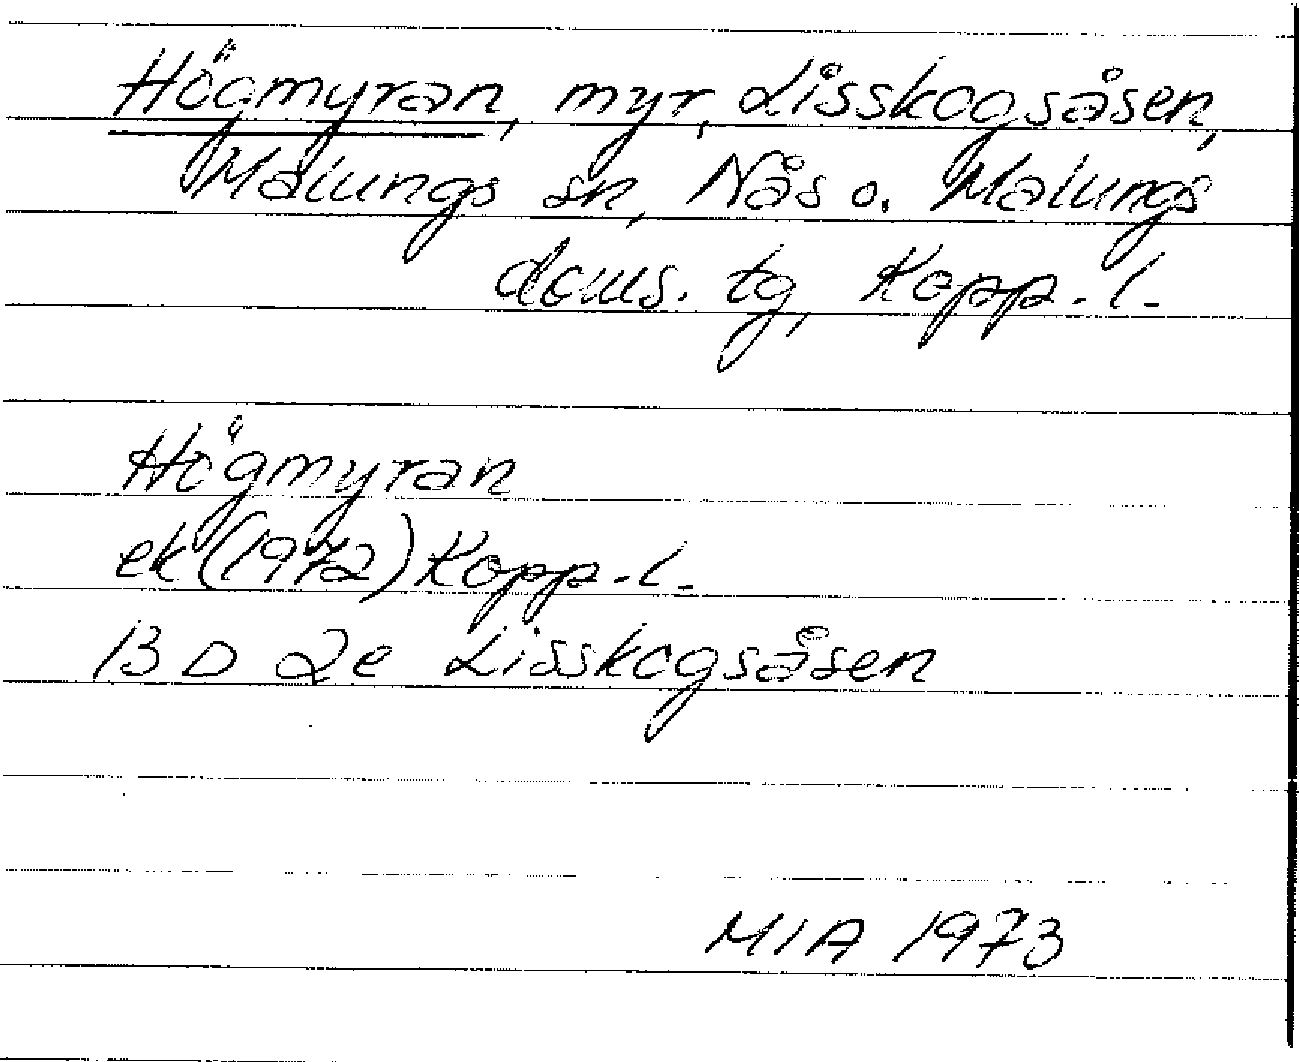 Högmyran, myr, Lisskogsåsen,
Malungs sn, Nås o. Malungs
doms. tg, Kopp. l.
Högmyran
ek (1972) Kopp. l.
13 D 2e Lisskogsåsen
MIA 1973